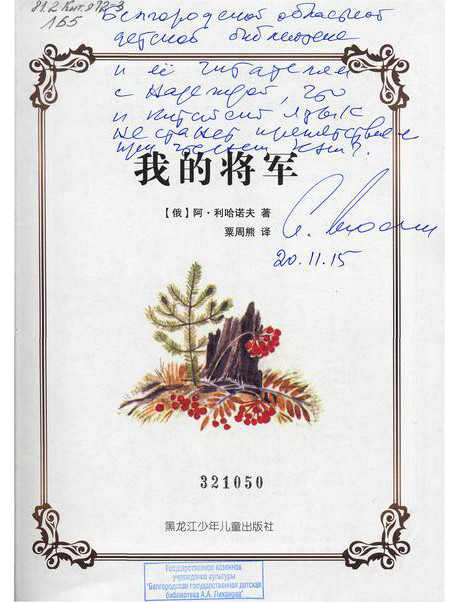 81.2 Кит. я 72-3
Л65
Белгородской областной
детской библиотеке
и её читателям
с надеждой, что
и китайский язык
не станет препятствием
при чтении книг.
我的将军
【俄】阿·利哈诺夫 著
粟周熊 译
20.11.15
321050
黑龙江少年儿童出版社
Государственное казенное
учреждение культуры
"Белгородская государственная детская
библиотека А.А. Лиханова"